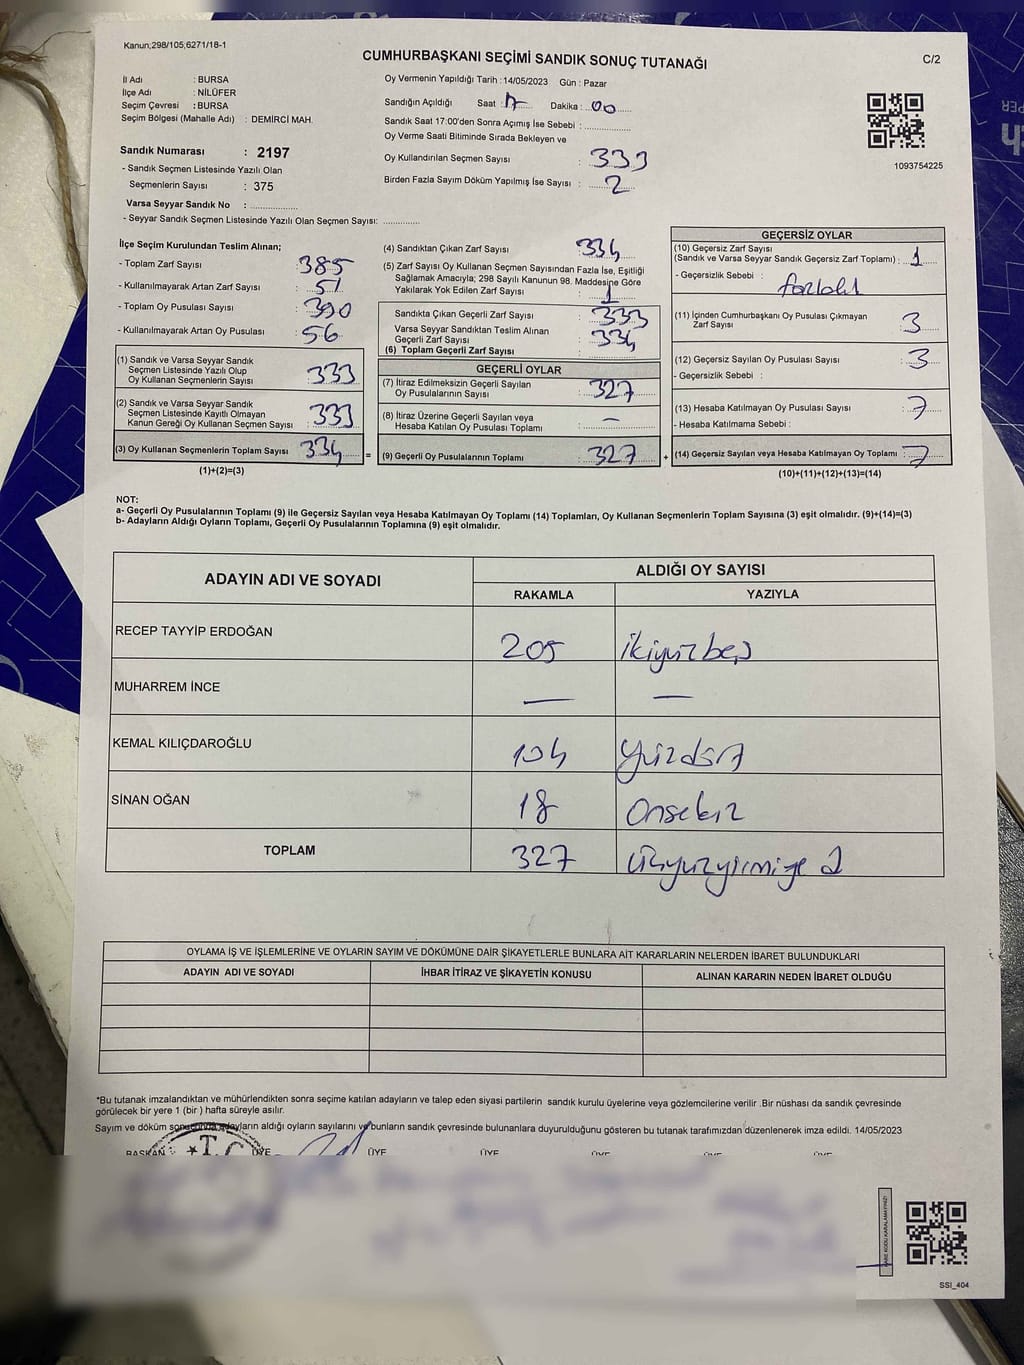 Kanun;298/105;6271/18-1
CUMHURBAŞKANI SEÇİMİ SANDIK SONUÇ TUTANAĞI
C/2
İl Adı : BURSA
İlçe Adı : NİLÜFER
Seçim Çevresi : BURSA
Seçim Bölgesi (Mahalle Adı) : DEMİRCİ MAH.
Oy Vermenin Yapıldığı Tarih : 14/05/2023 Gün : Pazar
Sandığın Açıldığı Saat : 17 Dakika : 00
Sandık Saat 17:00'den Sonra Açımış İse Sebebi :
Oy Verme Saati Bitiminde Sırada Bekleyen ve
Oy Kullandırılan Seçmen Sayısı : 333
Birden Fazla Sayım Döküm Yapılmış İse Sayısı : 2
1093754225
Sandık Numarası : 2197
- Sandık Seçmen Listesinde Yazılı Olan
Seçmenlerin Sayısı : 375
Varsa Seyyar Sandık No :
- Seyyar Sandık Seçmen Listesinde Yazılı Olan Seçmen Sayısı:
İlçe Seçim Kurulundan Teslim Alınan;
- Toplam Zarf Sayısı : 385
- Kullanılmayarak Artan Zarf Sayısı : 51
- Toplam Oy Pusulası Sayısı : 390
- Kullanılmayarak Artan Oy Pusulası : 56
(1) Sandık ve Varsa Seyyar Sandık
Seçmen Listesinde Yazılı Olup
Oy Kullanan Seçmenlerin Sayısı : 333
(2) Sandık ve Varsa Seyyar Sandık
Seçmen Listesinde Kayıtlı Olmayan
Kanun Gereği Oy Kullanan Seçmen Sayısı : 333
(3) Oy Kullanan Seçmenlerin Toplam Sayısı : 334
(1)+(2)=(3)
(4) Sandıktan Çıkan Zarf Sayısı : 334
(5) Zarf Sayısı Oy Kullanan Seçmen Sayısından Fazla İse, Eşitliği
Sağlamak Amacıyla; 298 Sayılı Kanunun 98. Maddesine Göre
Yakılarak Yok Edilen Zarf Sayısı : 1
Sandıkta Çıkan Geçerli Zarf Sayısı : 333
Varsa Seyyar Sandıktan Teslim Alınan
Geçerli Zarf Sayısı : 334
(6) Toplam Geçerli Zarf Sayısı :
GEÇERLİ OYLAR
(7) İtiraz Edilmeksizin Geçerli Sayılan
Oy Pusulalarının Sayısı : 327
(8) İtiraz Üzerine Geçerli Sayılan veya
Hesaba Katılan Oy Pusulası Toplamı : —
(9) Geçerli Oy Pusulalarının Toplamı : 327
GEÇERSİZ OYLAR
(10) Geçersiz Zarf Sayısı
(Sandık ve Varsa Seyyar Sandık Geçersiz Zarf Toplamı) : 1
- Geçersizlik Sebebi :
(11) İçinden Cumhurbaşkanı Oy Pusulası Çıkmayan
Zarf Sayısı : 3
(12) Geçersiz Sayılan Oy Pusulası Sayısı : 3
- Geçersizlik Sebebi :
(13) Hesaba Katılmayan Oy Pusulası Sayısı : 7
- Hesaba Katılmama Sebebi :
(14) Geçersiz Sayılan veya Hesaba Katılmayan Oy Toplamı : 7
(10)+(11)+(12)+(13)=(14)
NOT:
a- Geçerli Oy Pusulalarının Toplamı (9) ile Geçersiz Sayılan veya Hesaba Katılmayan Oy Toplamı (14) Toplamları, Oy Kullanan Seçmenlerin Toplam Sayısına (3) eşit olmalıdır. (9)+(14)=(3)
b- Adayların Aldığı Oyların Toplamı, Geçerli Oy Pusulalarının Toplamına (9) eşit olmalıdır.
ADAYIN ADI VE SOYADI
ALDIĞI OY SAYISI
RAKAMLA YAZIYLA
RECEP TAYYİP ERDOĞAN 205 ikiyüzbeş
MUHARREM İNCE — —
KEMAL KILIÇDAROĞLU 104 yüzdört
SİNAN OĞAN 18 Onsekiz
TOPLAM 327
OYLAMA İŞ VE İŞLEMLERİNE VE OYLARIN SAYIM VE DÖKÜMÜNE DAİR ŞİKAYETLERLE BUNLARA AİT KARARLARIN NELERDEN İBARET BULUNDUKLARI
ADAYIN ADI VE SOYADI İHBAR İTİRAZ VE ŞİKAYETİN KONUSU ALINAN KARARIN NEDEN İBARET OLDUĞU
*Bu tutanak imzalandıktan ve mühürlendikten sonra seçime katılan adayların ve talep eden siyasi partilerin sandık kurulu üyelerine veya gözlemcilerine verilir .Bir nüshası da sandık çevresinde
görülecek bir yere 1 (bir ) hafta süreyle asılır.
Sayım ve döküm sonucunda adayların aldığı oyların sayılarını ve bunların sandık çevresinde bulunanlara duyurulduğunu gösteren bu tutanak tarafımızdan düzenlenerek imza edildi. 14/05/2023
BAŞKAN ÜYE ÜYE ÜYE ÜYE ÜYE ÜYE
T.C
SSI_404